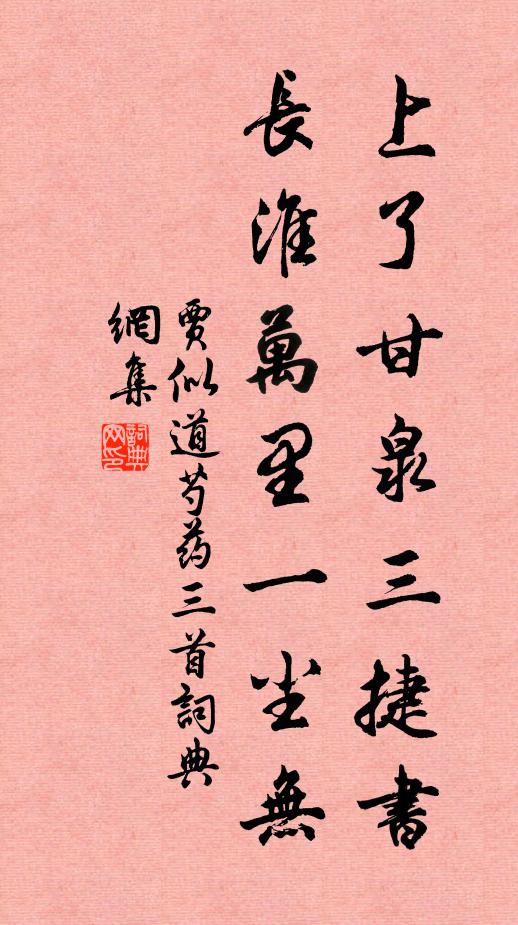 上了甘泉三捷書
長淮萬里一尘無
賈似道芍药三首詞典
網集
詞典網印